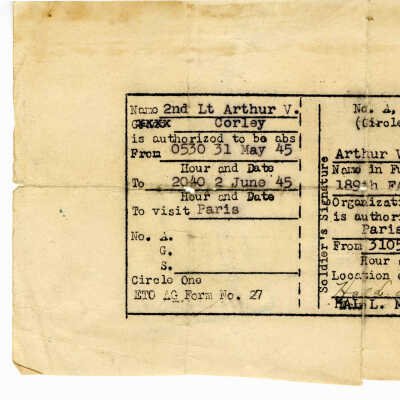 Name 2nd Lt Arthur V.
Corley
is authorized to be abs
From 0530 31 May 45
Hour and Date
To 2040 2 June 45
Hour and Date
To visit Paris
No. A.
G.
S.
Circle One
ETO AG Form No. 27
Soldier's Signature
No. A,
(Circle
Arthur V
Name in Fu
189th FA
Organizati
is authori
Paris
From 3105
Hour a
Location o
HAL L. M